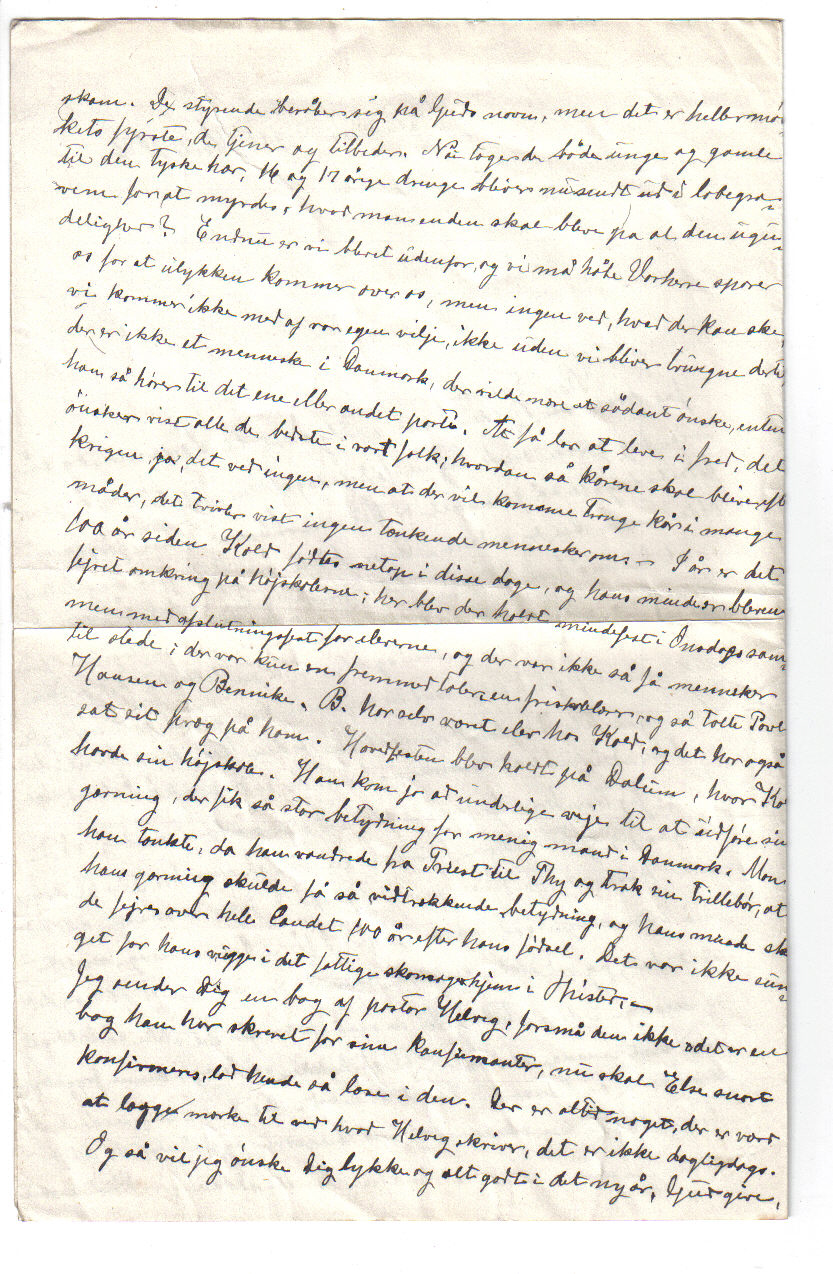 skam. De styrende beråber sig på Guds navn, men det er heller mør-
kets fyrste, de tjener og tilbeder. Nå tages de både unge og gamle
til den tyske hær, 16 og 17 årige drenge blives nu sendt ud i løbegra-
vene for at myrdes, hvad mon enden skal blive på al den ugu-
delighed? Endnu er vi blevet udenfor, og vi må håbe Vorherre sparer
os for at ulykken kommer over os, men ingen ved, hvad der kan ske,
vi kommer ikke med af vor egen vilje, ikke uden vi bliver tvungne dertil
der er ikke et menneske i Danmark, der vilde nære et sådant ønske, enten
han så hører til det ene eller andet parti. At få lov at leve i fred, det
ønsker vist alle de bedste i vort folk; hvordan så kårene skal blive eft
krigen, ja, det ved ingen, men at der vil komme trange kår i mange
måder, det tvivler vist ingen tænkende mennesker om. – I år er det
100 år siden Kold fødtes netop i disse dage, og hans minde er bleven
fejret omkring på højskolerne; her blev der holdt mindefest i Onsdags sam-
men med afslutningsfest for eleverne, og der var ikke så få mennesker
til stede; der var kun en fremmed taler, en friskolelærer, og så talte Povl
Hansen og Bennike. B. har selv været elev hos Kold, og det har også
sat sit præg på ham. Hovedfesten blev holdt på Dalum, hvor Ko
havde sin højskole. Han kom jo ad underlige veje til at udføre sin
gærning, der fik så stor betydning for menig mand i Danmark. Mon
han tænkte, da han vandrede fra Triest til Thy og trak sin trillebør, at
hans gærning skulde få så vidtrækkende betydning, og hans minde sk
de fejres over hele landet 100 år efter hans fødsel. Det var ikke sun-
get for hans vugge i det fattige skomagerhjem i Thisted. –
Jeg sender Dig en bog af pastor Helveg, forsmå den ikke, det er en
bog han har skrevet for sine konfirmanter, nu skal Else snart
konfirmeres, lad hende så læse i den. Der er altid noget, der er værd
at lægge mærke til ved hvad Helveg skriver, det er ikke dagligdags.
Og så vil jeg ønske Dig lykke og alt godt i det ny år, Gud give,